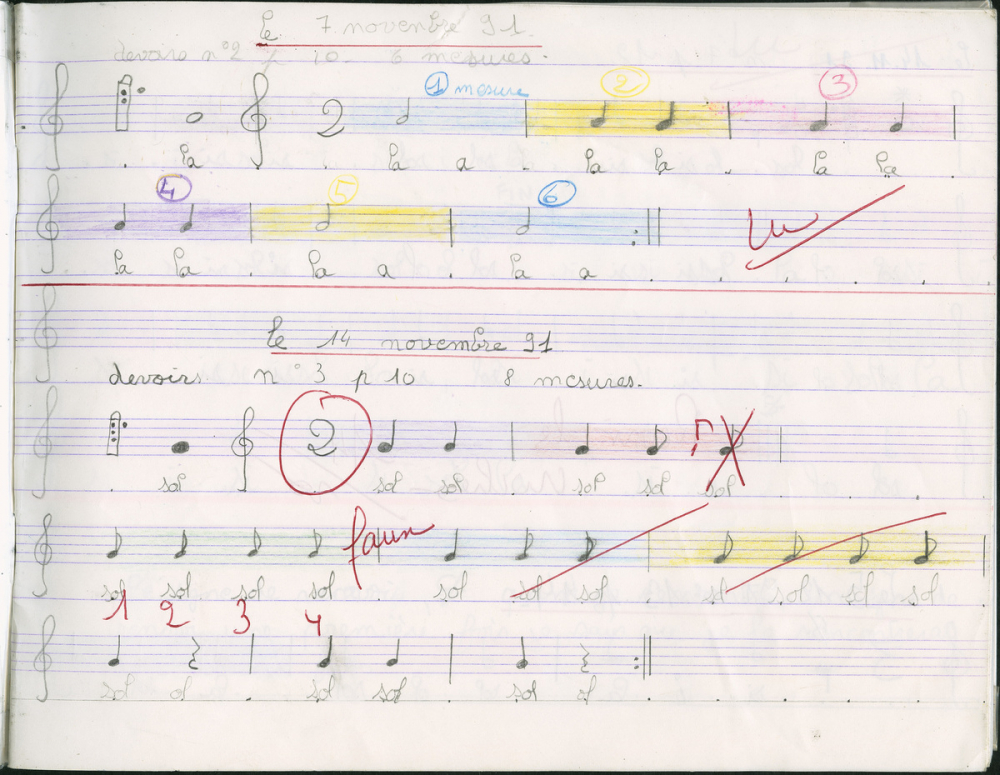 le 7 novembre 91.
devoirs n°2 p 10. 6 mesures.
1 mesure 2 3
2
la la a . la la . la la .
4 5 6
la la . la a . la a .
Vu
le 14 novembre 91
devoirs n°3 p 10 8 mesures.
2
sol sol sol sol sol sol
faux
sol sol sol sol sol sol sol sol sol sol sol
1 2 3 4
sol ol . sol sol sol ol